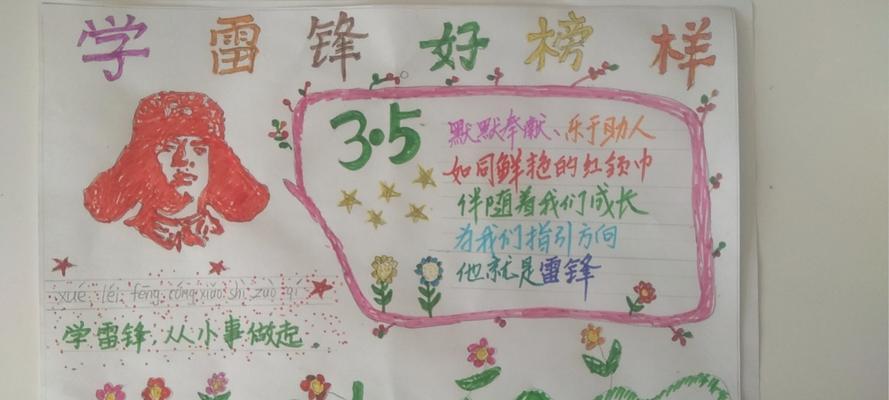 学雷锋好榜样
3·5
默默奉献、乐于助人
如同鲜艳的红领巾
伴随着我们成长
为我们指引方向
他就是雷锋
xué léi fēng cóng xiǎo shì zuò qǐ
学雷锋,从小事做起